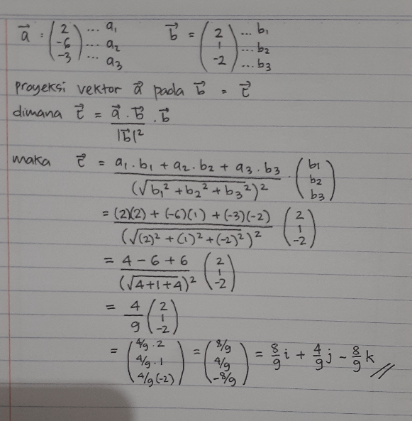 a⃗ = (2 -6 -3) ... a₁ ... a₂ ... a₃    b⃗ = (2 1 -2) ... b₁ ... b₂ ... b₃
proyeksi vektor a⃗ pada b⃗ = c⃗
dimana c⃗ = a⃗ . b⃗ / |b⃗|² . b⃗
maka c⃗ = a₁ . b₁ + a₂ . b₂ + a₃ . b₃ / (√b₁² + b₂² + b₃²)² . (b₁ b₂ b₃)
= (2)(2) + (-6)(1) + (-3)(-2) / (√(2)² + (1)² + (-2)²)² (2 1 -2)
= 4 - 6 + 6 / (√4+1+4)² (2 1 -2)
= 4/9 (2 1 -2)
= (4/9 . 2 4/9 . 1 4/9 (-2)) = (8/9 4/9 -8/9) = 8/9 i + 4/9 j - 8/9 k //